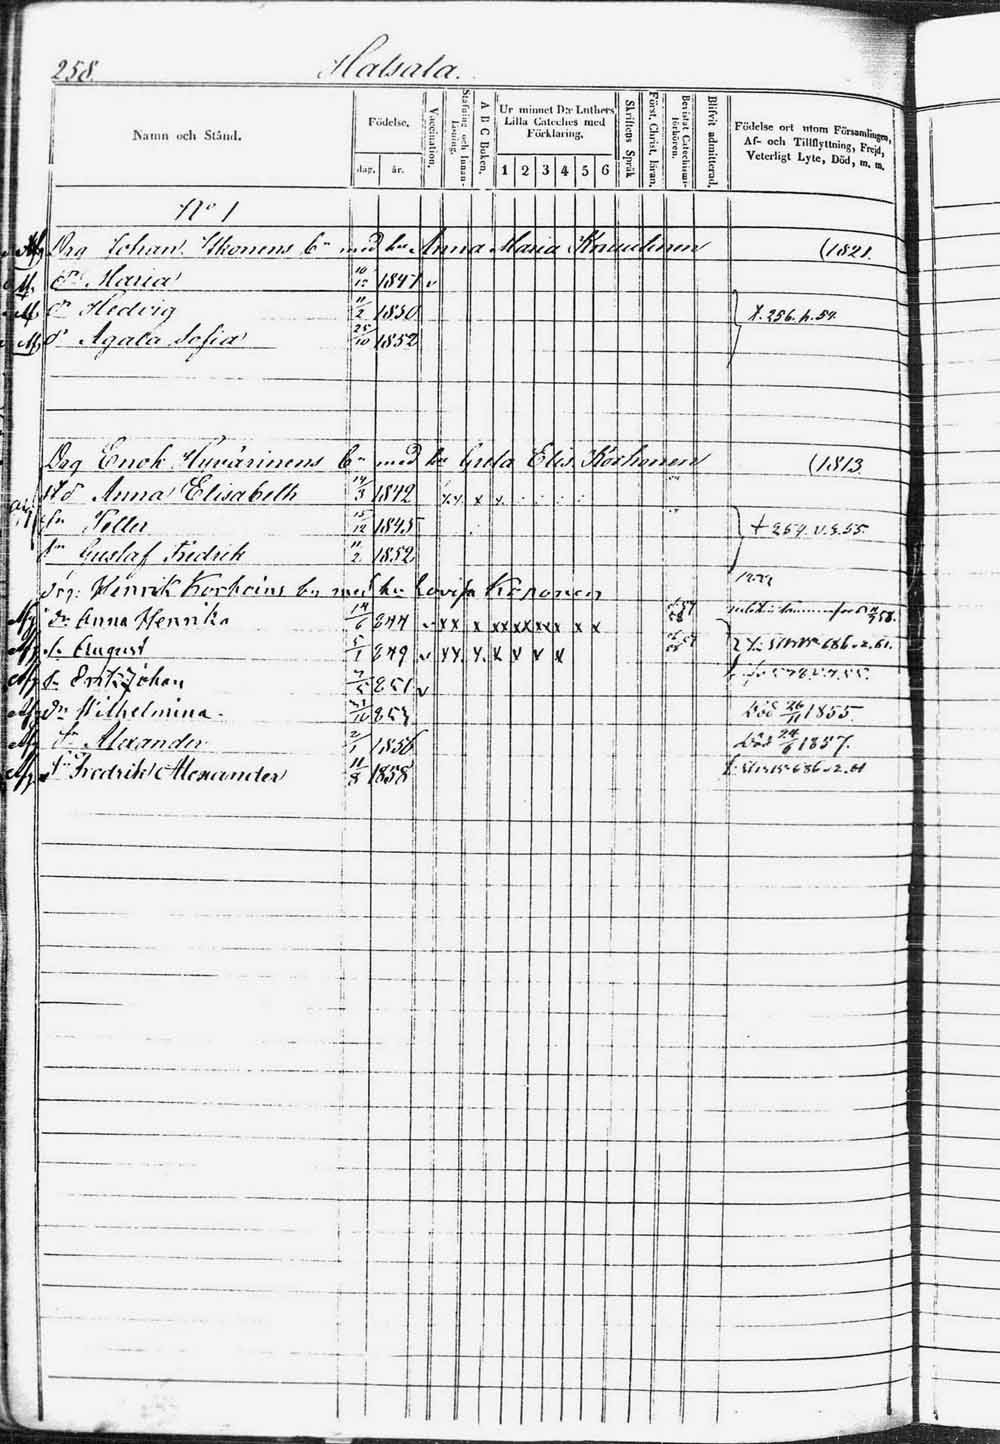 258.
Halsala.
Namn och Stånd.
Födelse.
dag. år.
Vaccination.
Stafning och Innan-Läsning.
A B C Boken.
Ur minnet D:r Luthers
Lilla Cateches med
Förklaring.
1 2 3 4 5 6
Skriftens Språk
Först. Christ. läran.
Bevistat Catechismi-förhören.
Blifvit admitterad.
Födelse ort utom Församlingen,
Af- och Tillflyttning, Frejd,
Veterligt Lyte, Död, m. m.
No 1
Drg Johan Ikonens bn med hu Anna Maria (1821.
dr Maria 10/12 1847
dr Hedvig 11/2 1850
dr Agata Sofia 25/10 1852
256. p. 54.
Drg Enok Huvärinens bn med hu Greta Elis. Korhonen (1813.
dr Anna Elisabeth 14/3 1842 x x x x
sn Petter 15/12 1845
sn Gustaf Fredrik 11/2 1852
Drg: Henrik Korhoins bn med hu Lovisa Koponen
dr Anna Henrika 14/6 844 x x x x x x x x x x x
sn August 5/1 849 x x x x x x x
sn Erik Johan 851
dr Wilhelmina
Död 26/11 1855.
sn Alexander 2/1 1856 Död 24/6 1857.
sn Fredrik Alexander 11/8 1858